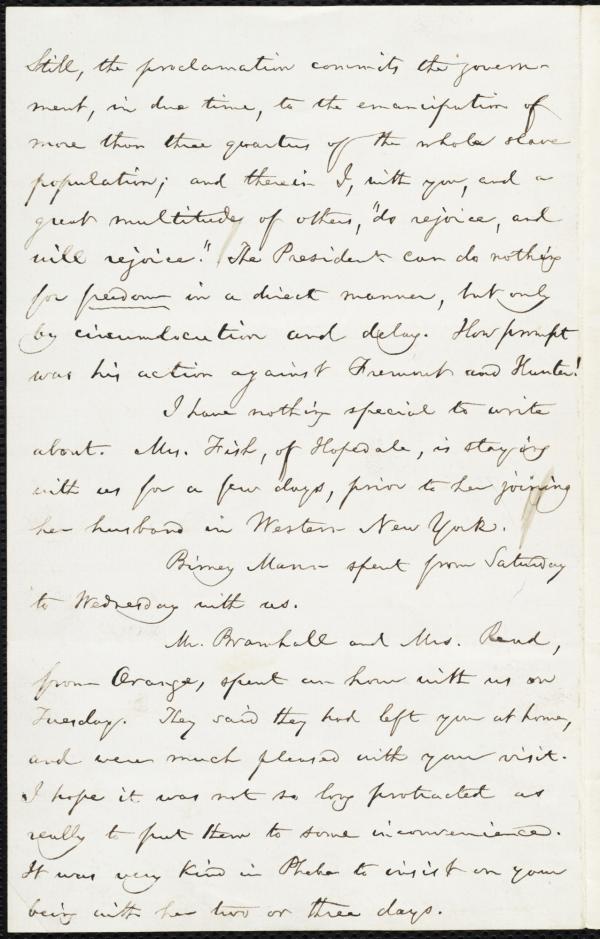 Still, the proclamation commits the govern-
ment, in due time, to the emancipation of
more than three quarters of the whole slave
population; and therein I, with you, and a
great multitude of others, "do rejoice, and
will rejoice." The President can do nothing
for freedom in a direct manner, but only
by circumlocution and delay. How prompt
was his action against Fremont and Hunter!
I have nothing special to write
about. Mrs. Fish, of Hopedale, is staying
with us for a few days, prior to her joining
her husband in Western New York.
Birney Mann spent from Saturday
to Wednesday with us.
Mr. Bramhall and Mrs. Read,
from Orange, spent an hour with us on
Tuesday. They said they had left you at home,
and were much pleased with your visit.
I hope it was not so long protracted as
really to put them to some inconvenience.
It was very kind in Phebe to insist on your
being with her two or three days.